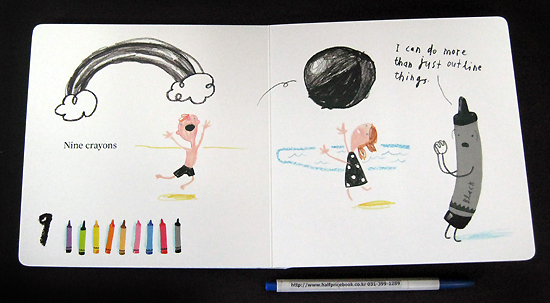 Nine crayons
9
I can do more
than just outline
things.
Black
http://www.halfpricebook.co.kr 031-399-1289